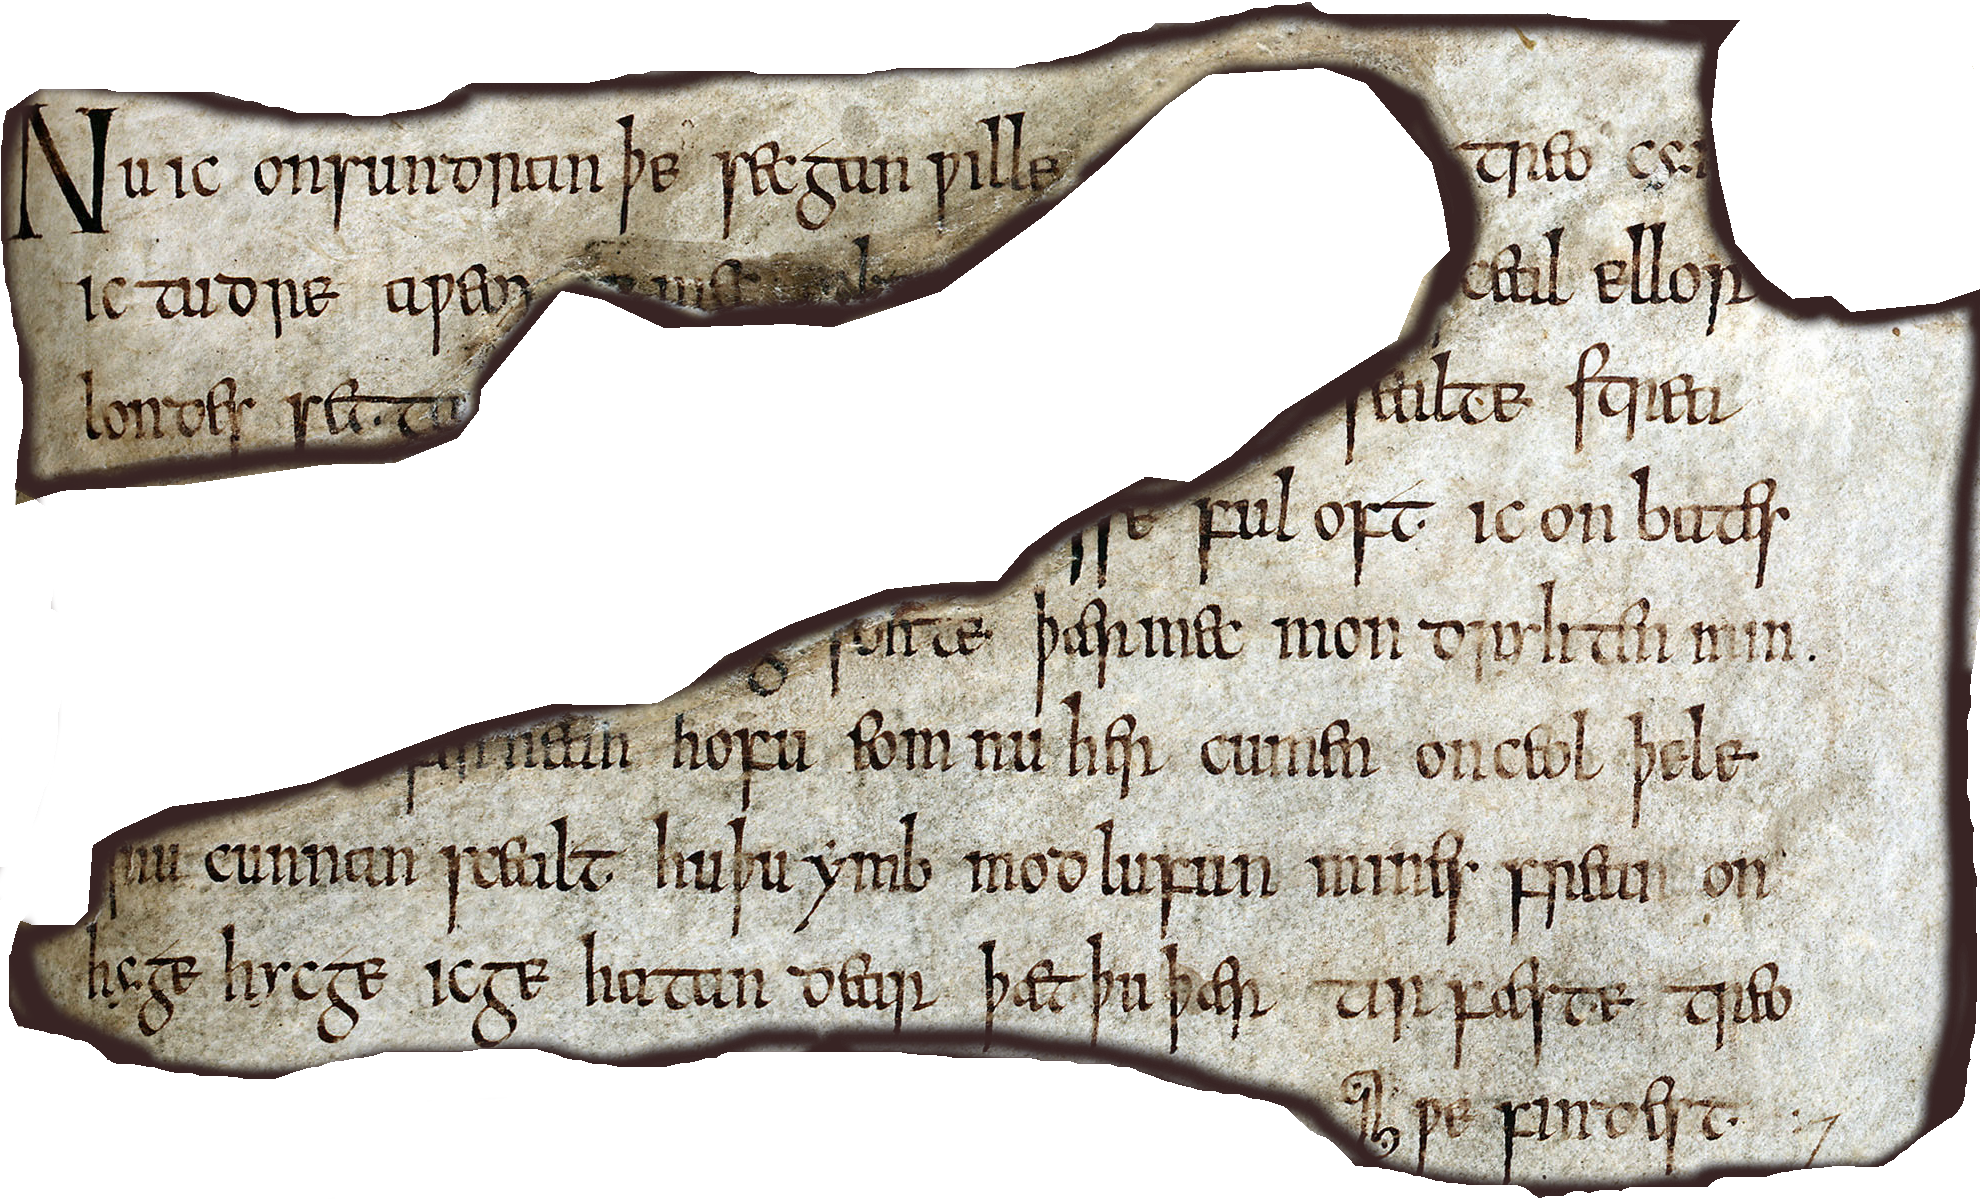 Nu ic onsundran þe secgan ƿille treo cyn
ic tudre aƿeox in mec æld sceal ellor
londes settan sealte strea
sse ful oft ic on bates
gesohte þær mec mon dryhten min
ofer heah hofu eom nu her cumen on ceol þele
nu cunnan scealt hu þu ymb modlufun mines frean on
hyge hycge ic gehatan dear þæt þu þær tirfæste treo
ƿe findest :7